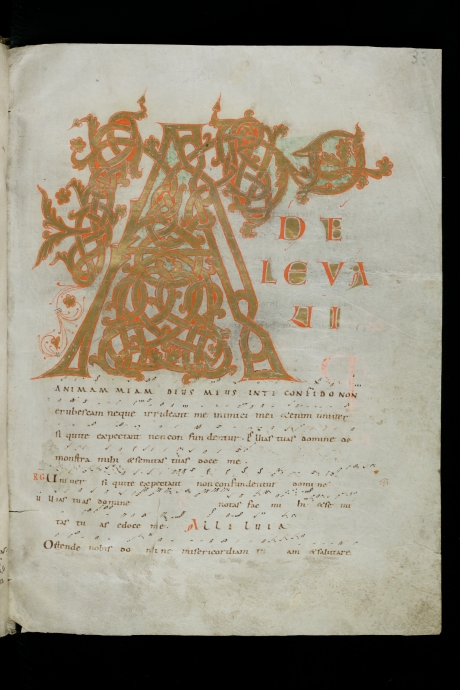 33
A D TE
LEVA
UI
ANIMAM MEAM DEUS MEUS INTE CONFIDO NON
erubescam neque irrideant me inimici mei etenim univer
si qui te expectant non con fun dentur Ps Vias tuas domine de
monstra mihi &semitas tuas doce me.
RG Univer si qui te expectant non confundentur domine
V Vias tuas domine notas fac mi hi &se mi
tas tu as edoce me. Alleluia
Ostende nobis do mi ne misericordiam tu am &salutare